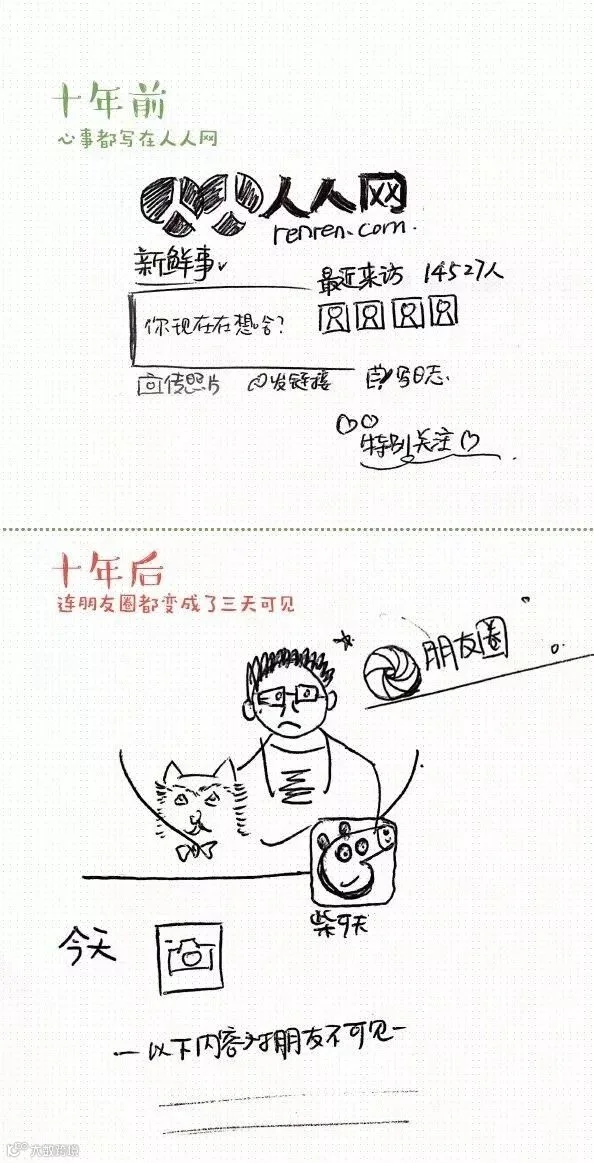 十年前
心事都写在人人网
人人网
renren.com.
新鲜事
最近来访 14527人
你现在在想啥?
传照片 发链接 写日志
特别关注
十年后
连朋友圈都变成了三天可见
朋友圈
今天
一以下内容对朋友不可见一